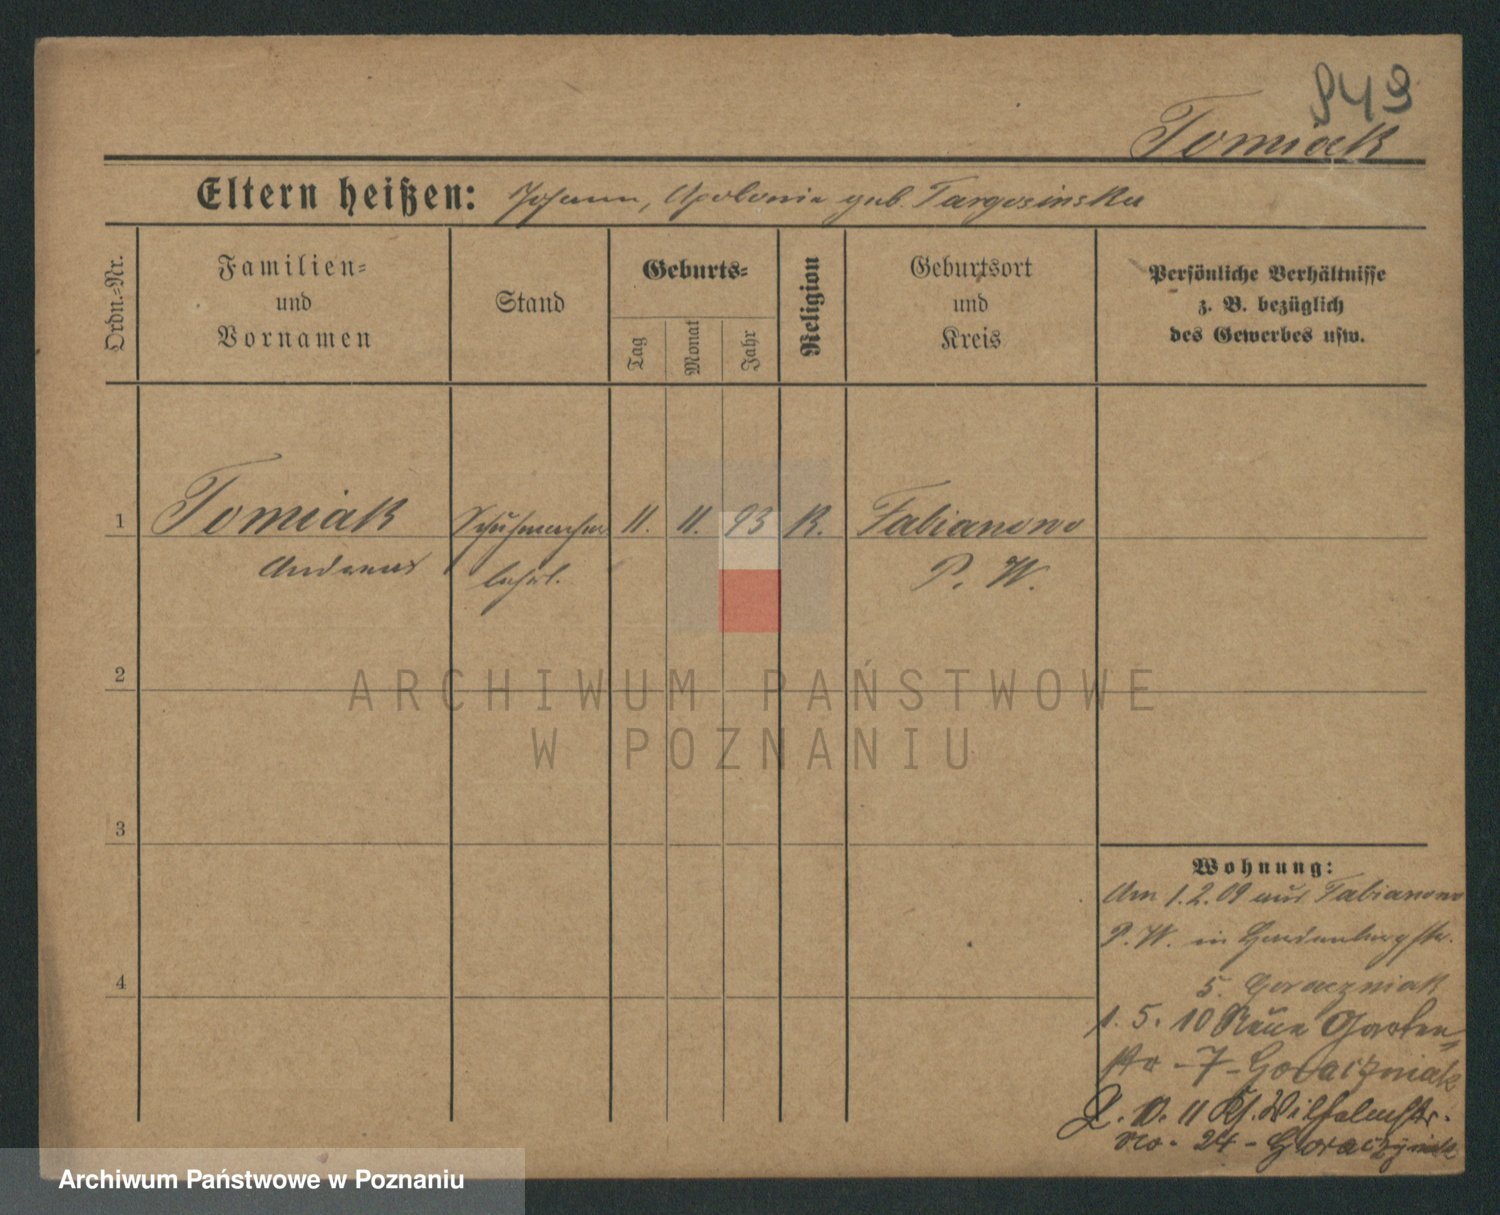 949
Tomiak
Eltern heißen: Johann, Apolonia geb. Targosinska
Ordn.-Nr.
Familien-
und
Vornamen
Stand
Geburts-
Tag
Monat
Jahr
Religion
Geburtsort
und
Kreis
Persönliche Verhältnisse
z. B. bezüglich
des Gewerbes usw.
1 Tomiak Schuhmacher 11. 11. 93 K. Fabianowo
Andreas lehrl. P. W.
2
3
4
Wohnung:
Am 1.2.09 aus Fabianowo
P. W. in Hardenburgstr.
5. Goraczniak
1. 5. 10 Neue Garten-
str - 7 - Goraczniak
2. 10. 11 Kl. Wilhelmstr.
No. 24 - Goraczniak
ARCHIWUM PAŃSTWOWE
W POZNANIU
Archiwum Państwowe w Poznaniu